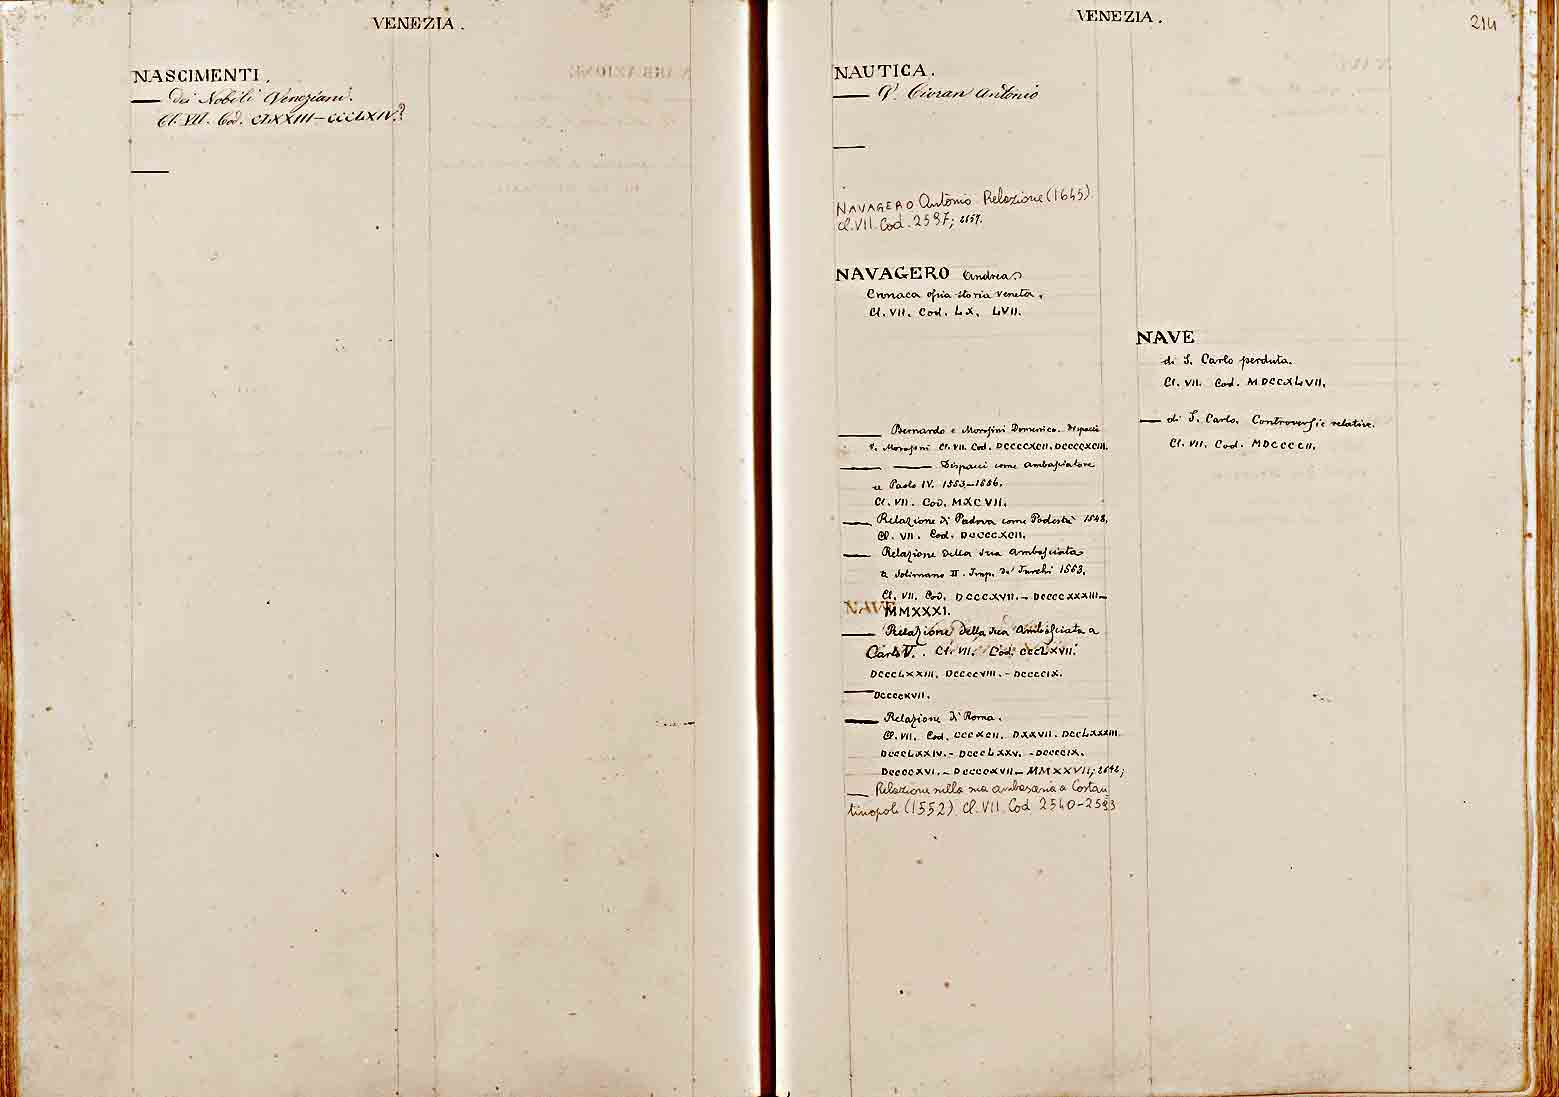 VENEZIA.
NASCIMENTI.
— dei Nobili Veneziani.
Cl. VII. Cod. CLXXIII–CCCLXIV.
VENEZIA.
214
NAUTICA.
— V. Cioran Antonio
NAVAGERO Antonio Relazione (1645).
Cl. VII. Cod. 2537; 2657.
NAVAGERO Andrea
Cronaca ossia storia veneta.
Cl. VII. Cod. LX. LVII.
— Bernardo e Morosini Domenico. Dispacci
V. Morosini Cl. VII. Cod. DCCCCXCII. DCCCCXCIII.
— — Dispacci come ambasciatore
a Paolo IV. 1553–1556.
Cl. VII. Cod. MXCVII.
— Relazione di Padova come Podestà 1548.
Cl. VII. Cod. DCCCCXCII.
— Relazione della sua ambasciata
a Solimano II. Imp. de' Turchi 1553.
Cl. VII. Cod. DCCCXVII. – DCCCCXXXIII–
MMXXXI.
— Relazione della sua ambasciata a
Carlo V. Cl. VII. Cod. CCCLXVII.
DCCCLXXIII. DCCCCVIII. – DCCCCIX.
— DCCCCXVII.
— Relazione di Roma.
Cl. VII. Cod. CCCXCII. DXXVII. DCCLXXXIII.
DCCCLXXIV. – DCCCLXXV. – DCCCCIX.
DCCCCXVI. – DCCCCXVII – MMXXVII; 2642;
— Relazione nella sua ambasciaria a Costan
tinopoli (1552) Cl. VII. Cod 2540–2593
NAVE
di S. Carlo perduta.
Cl. VII. Cod. MDCCXLVII.
— di S. Carlo. Controversie relative.
Cl. VII. Cod. MDCCCCII.